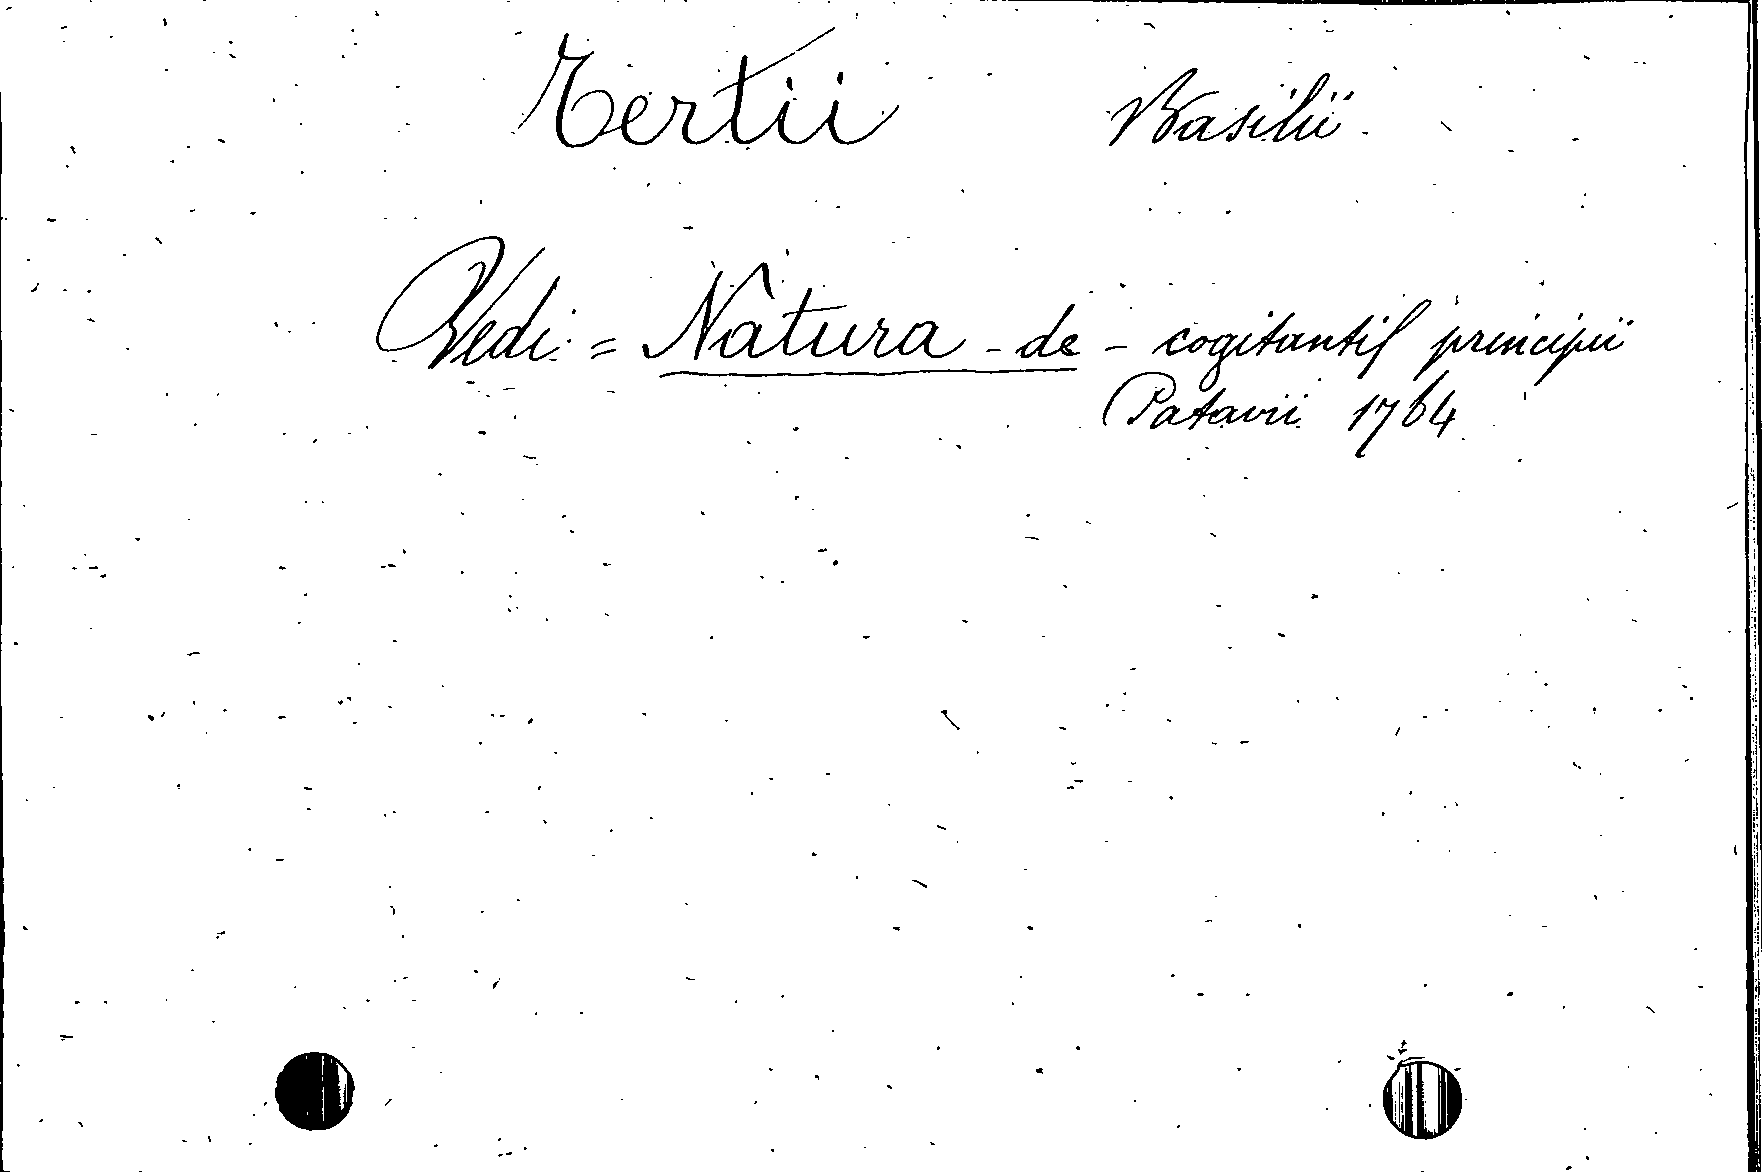 Tertii Basilii
Vedi = Natura - de - cogitantis principii
Patavii 1764